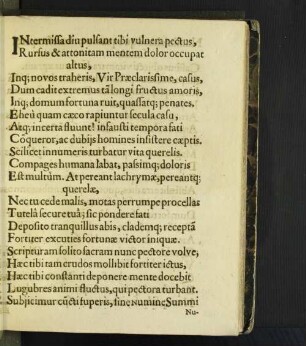 INtermissa diu pulsant tibi vulnera pectus,
Rursus & attonitam mentem dolor occupat
altus,
Inq; novos traheris, Vir Præclarissime, casus,
Dum cadit extremus tã longi fructus amoris,
Inq; domum fortuna ruit, quassatq; penates.
Eheu quam cæco rapiuntur secula casu,
Atq; incerta fluunt! infausti tempora fati
Cõqueror, ac dubijs homines insistere cæptis.
Scilicet innumeris turbatur vita querelis.
Compages humana labat, passimq; doloris
Est multùm. At pereant lachrymæ, pereantq;
querelæ,
Nec tu cede malis, motas perrumpe procellas
Tutelâ secure tuâ; sic pondere fati
Deposito tranquillus abis, clademq; receptã
Fortiter excuties fortunæ victor iniquæ.
Scripturam solito sacram nunc pectore volve,
Hæc tibi tam crudos mollibit fortiter ictus,
Hæc tibi constanti deponere mente docebit
Lugubres animi fluctus, qui pectora turbant.
Subjicimur cũcti superis, sine Numine Summi
Nu-